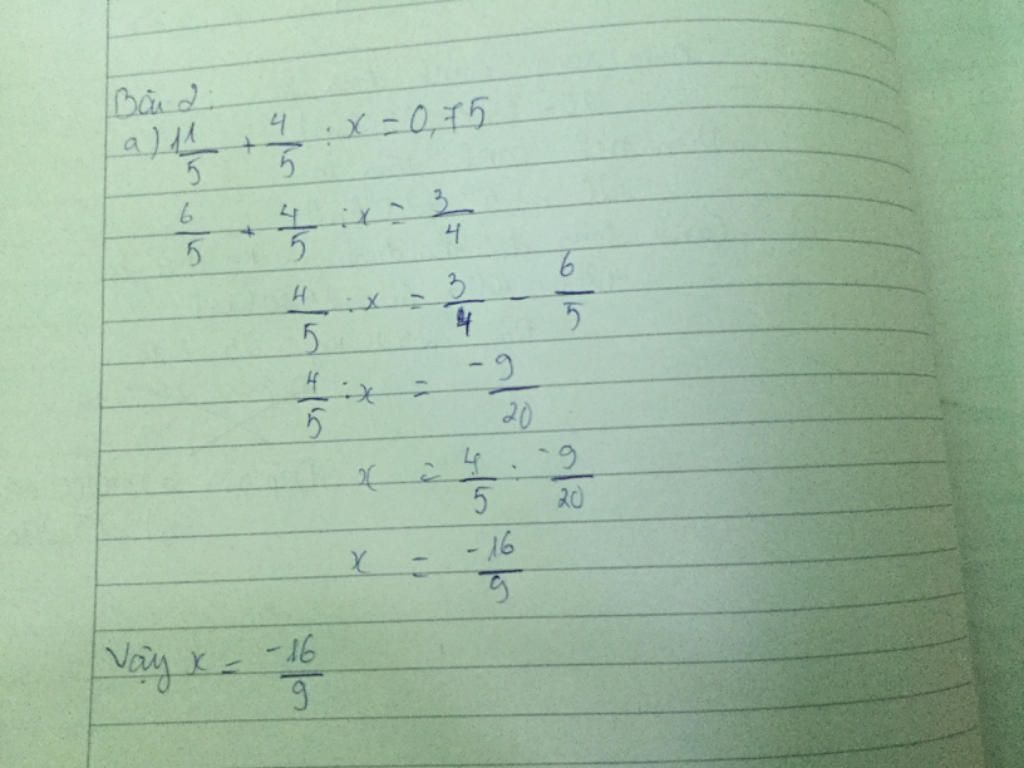 Bài 2:
a) 1 1/5 + 4/5 : x = 0,75
6/5 + 4/5 : x = 3/4
4/5 : x = 3/4 - 6/5
4/5 : x = -9/20
x = 4/5 : -9/20
x = -16/9
Vậy x = -16/9